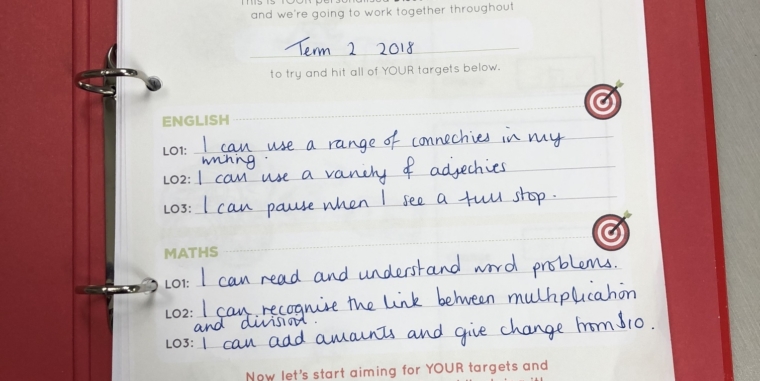 This is YOUR personalised
and we're going to work together throughout
Term 2 2018
to try and hit all of YOUR targets below.
ENGLISH
LO1: I can use a range of connectives in my
writing.
LO2: I can use a variety of adjectives
LO3: I can pause when I see a full stop.
MATHS
LO1: I can read and understand word problems.
LO2: I can recognise the link between multiplication
and division.
LO3: I can add amounts and give change from $10.
Now let's start aiming for YOUR targets and